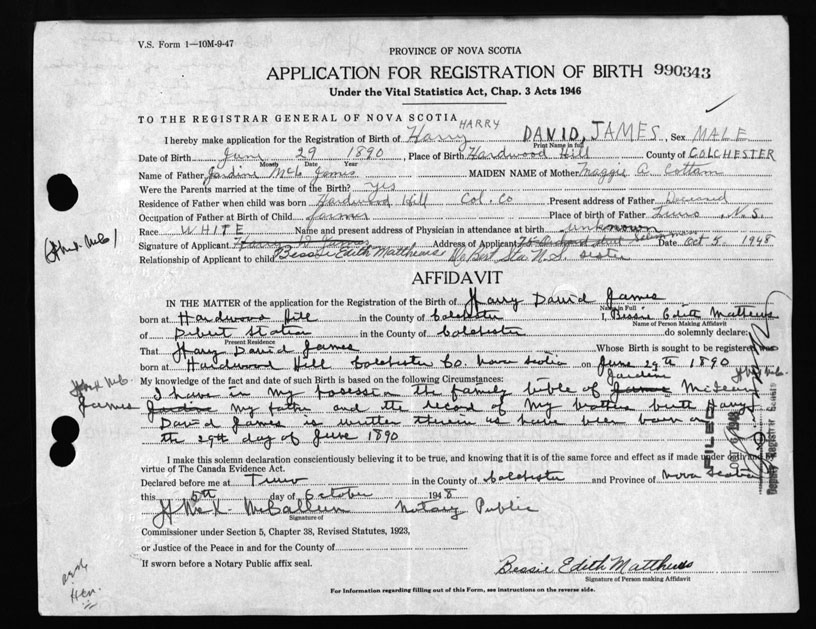 V.S. Form 1—10M-9-47
PROVINCE OF NOVA SCOTIA
APPLICATION FOR REGISTRATION OF BIRTH 990343
Under the Vital Statistics Act, Chap. 3 Acts 1946
TO THE REGISTRAR GENERAL OF NOVA SCOTIA
HARRY
I hereby make application for the Registration of Birth of Harry DAVID, JAMES, Sex MALE
Print Name in full
Date of Birth June 29 1890, Place of Birth Hardwood Hill County of COLCHESTER
Month Date Year
Name of Father Jardine McL James MAIDEN NAME of Mother Maggie A. Cottam
Were the Parents married at the time of the Birth? yes
Residence of Father when child was born Hardwood Hill Col. Co Present address of Father Deceased
Occupation of Father at Birth of Child farmer Place of birth of Father N.S.
Race WHITE Name and present address of Physician in attendance at birth unknown
Signature of Applicant Harry D. James Address of Applicant 75 Date Oct 5, 1948
Relationship of Applicant to child Bessie Edith Matthews De Bert Sta. N.S. sister
AFFIDAVIT
IN THE MATTER of the application for the Registration of the Birth of Harry David James
Name in Full
born at Hardwood Hill in the County of Colchester I, Bessie Edith Matthews
Name of Person Making Affidavit
of Debert Station in the County of Colchester do solemnly declare:
Present Residence
That Harry David James Whose Birth is sought to be registered was
born at Hardwood Hill Colchester Co. Nova Scotia on June 29th 1890
My knowledge of the fact and date of such Birth is based on the following Circumstances: Jardine
I have in my possession the family bible of James McLean
James Jardine my father and the record of my brothers birth Harry
David James is written therein as have been born on
the 29th day of June 1890
I make this solemn declaration conscientiously believing it to be true, and knowing that it is of the same force and effect as if made under oath and by
virtue of The Canada Evidence Act.
Declared before me at Truro in the County of Colchester and Province of Nova Scotia
this 5th day of October 1948
H McK. McCallum Notary Public
Signature of
Commissioner under Section 5, Chapter 38, Revised Statutes, 1923,
or Justice of the Peace in and for the County of
If sworn before a Notary Public affix seal.
Bessie Edith Matthews
Signature of Person making Affidavit
For Information regarding filling out of this Form, see instructions on the reverse side.
FILED